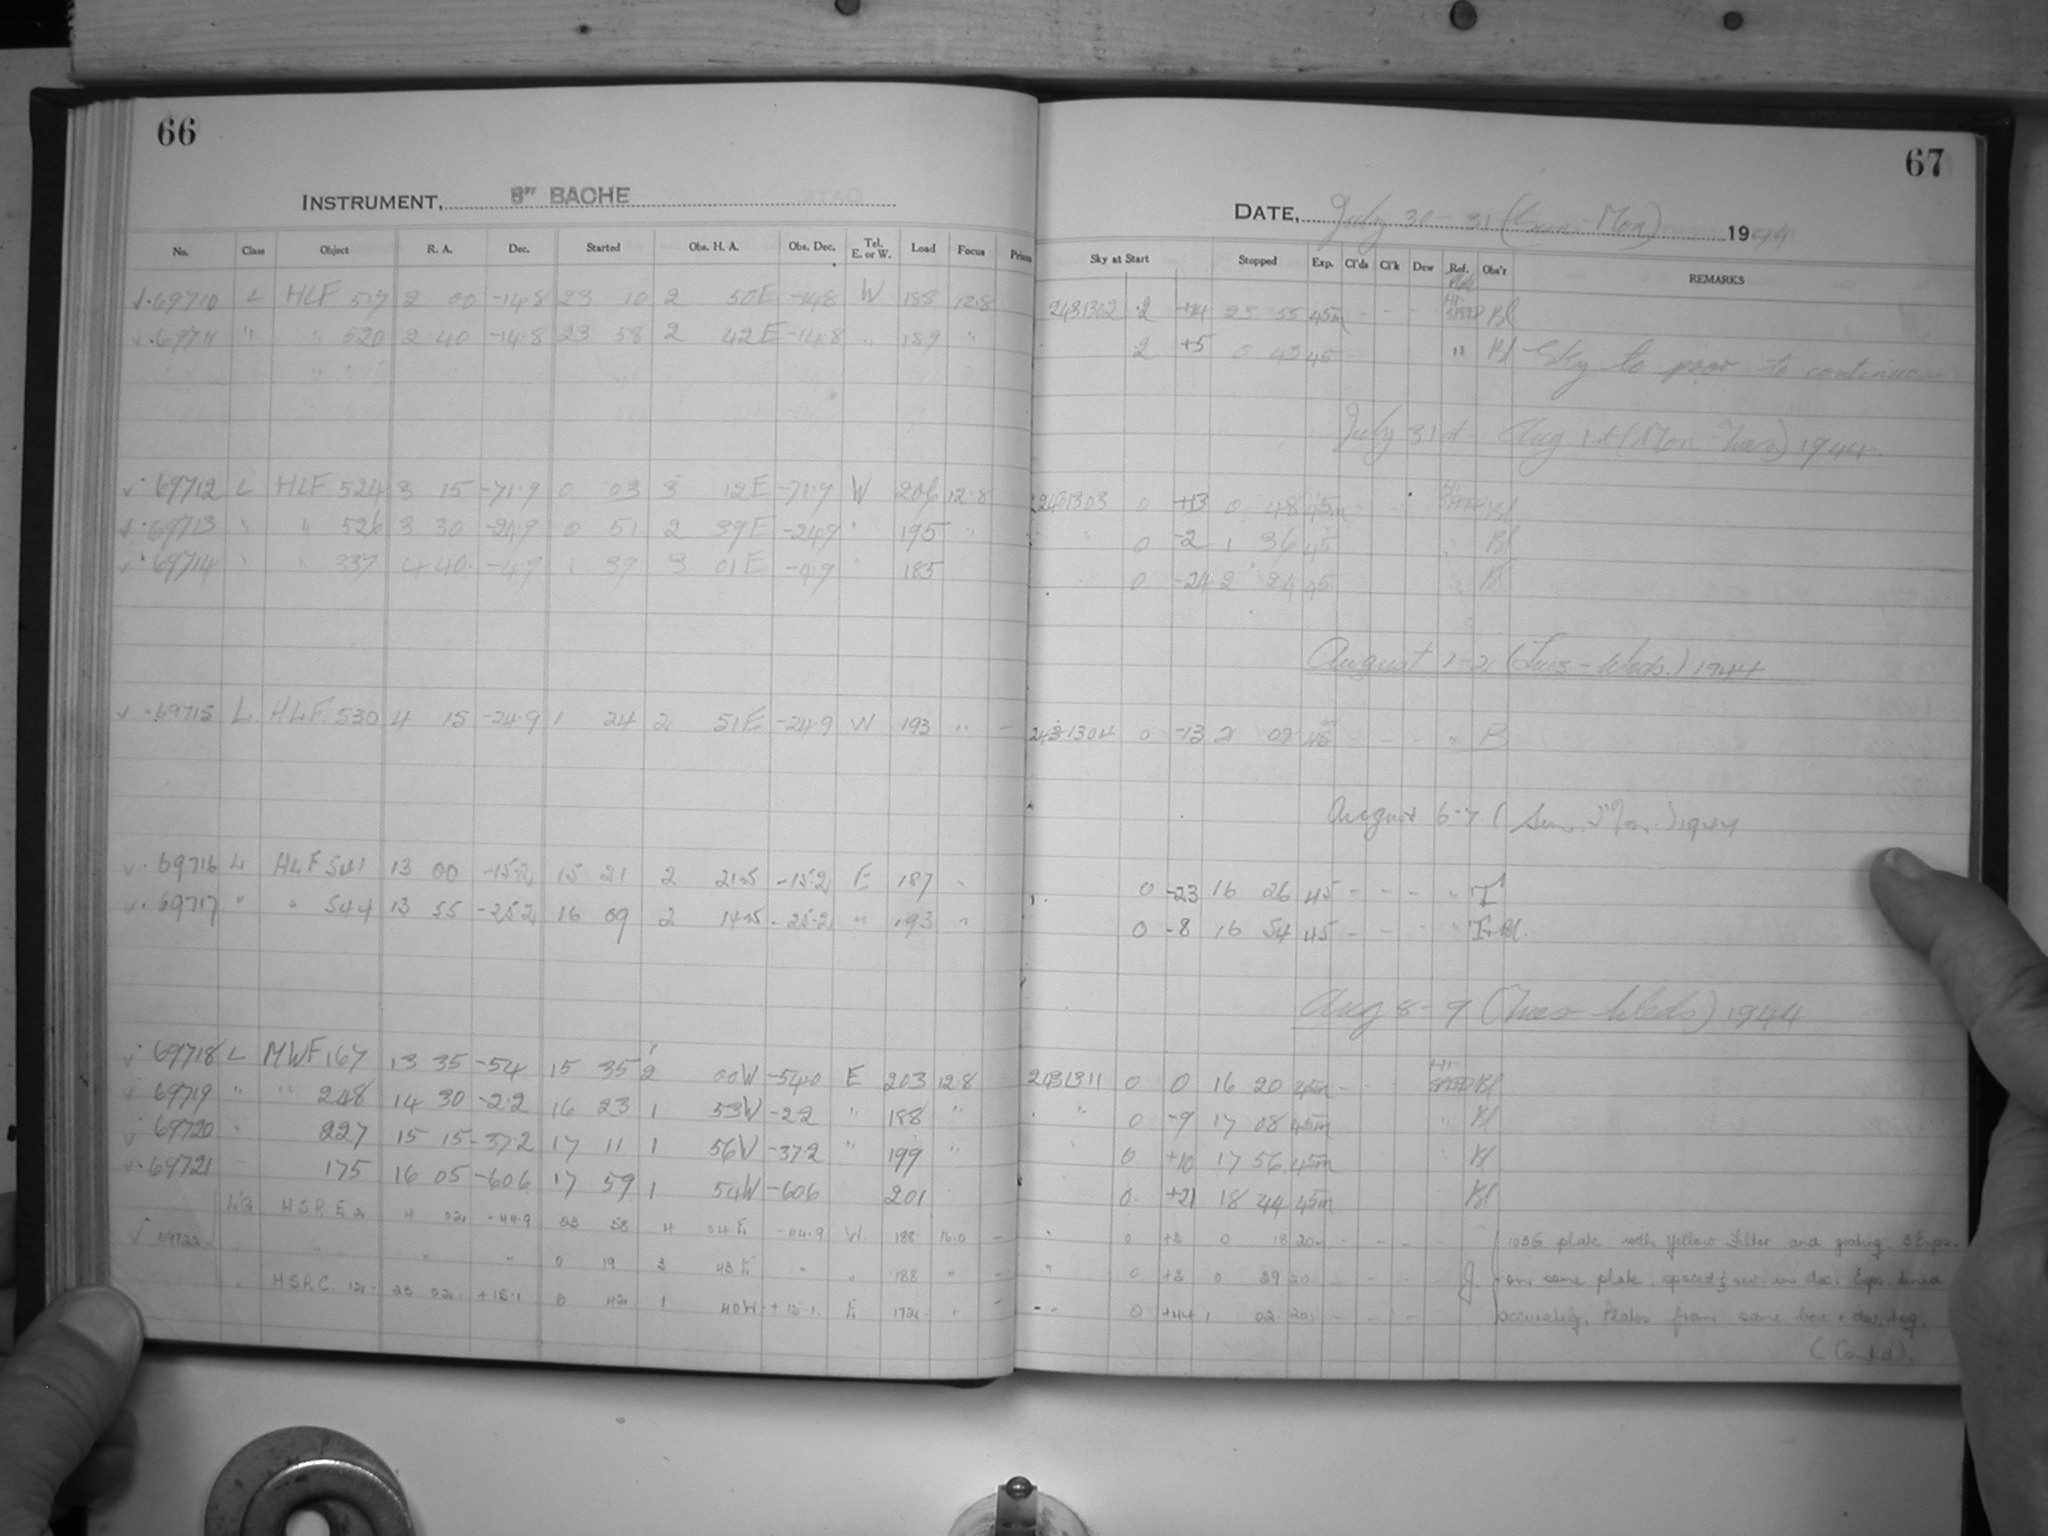 66
INSTRUMENT, 8" BACHE
No. Class Object R. A. Dec. Started Obs. H. A. Obs. Dec. Tel. E. or W. Load Focus Prism
√·69710 L HLF 517 2 00 -14·8 23 10 2 50E -14·8 W 188 12·8
√·69711 " " 520 2 40 -14·8 23 58 2 42E -14·8 " 189 "
√·69712 L HLF 524 3 15 -71·9 0 03 3 12E -71·9 W 206 12·8
√·69713 " " 526 3 30 -24·9 0 51 2 39E -24·9 " 195 "
√·69714 " " 337 4 40 -4·9 1 39 3 01E -4·9 " 185
√·69715 L. HLF. 530 4 15 -24·9 1 24 2 51E -24·9 W 193 " –
√·69716 L HLF 541 13 00 -15·2 15 21 2 21·5 -15·2 E 187 "
√·69717 " " 544 13 55 -25·2 16 09 2 14·5 -25·2 " 193 "
√·69718 L MWF 167 13 35 -54 15 35 2 00W -54·0 E 203 12·8
√ 69719 " " 248 14 30 -2·2 16 23 1 53W -2·2 " 188 "
√ 69720 " 227 15 15 -37·2 17 11 1 56W -37·2 " 199 "
√·69721 175 16 05 -60·6 17 59 1 54W -60·6 201
LG H.S.P. E 2 4 02 -44·9 23 58 4 04 E -44·9 W 188 16·0 –
√ 69722 " " " 0 19 3 43 E " " 188 " –
" H.S.P.C. 12 23 02 +15·1 0 42 1 40W +15·1 E 172 " –
67
DATE, July 30-31 (Sun-Mon) 1944
Sky at Start Stopped Exp. Cl'ds Cl'k Dew Ref. Obs'r REMARKS
2431302 2 +14 23 55 45m - - - HI-SPEED Bl
2 +5 0 43 45 " Bl Sky to poor to continue
July 31st Aug 1st (Mon Tues) 1944
2431303 0 +13 0 48 45m - - Bl
0 -2 1 36 45 Bl
0 -24 2 24 45 Bl
August 1-2 (Tues-Weds.) 1944
2431304 0 -13 2 09 45 - - - " B
August 6-7 (Sun. Mon.) 1944
0 -23 16 26 45 - - - " T
0 -8 16 54 45 - - - " T-Bl.
Aug 8-9 (Tues Weds) 1944
2431311 0 0 16 20 45m - - HI-SPEED Bl
" " 0 -9 17 08 45m " Bl
0 +10 17 56 45m Bl
0 +21 18 44 45m Bl
" 0 +3 0 18 20 - - - - 103G plate with yellow filter and grating. 3 Exps.
" 0 +3 0 39 20 - - - - J. on same plate, spaced in dec. Exps. timed
" 0 +44 1 02 20 - - - - accurately. Plates from same box
(Contd).